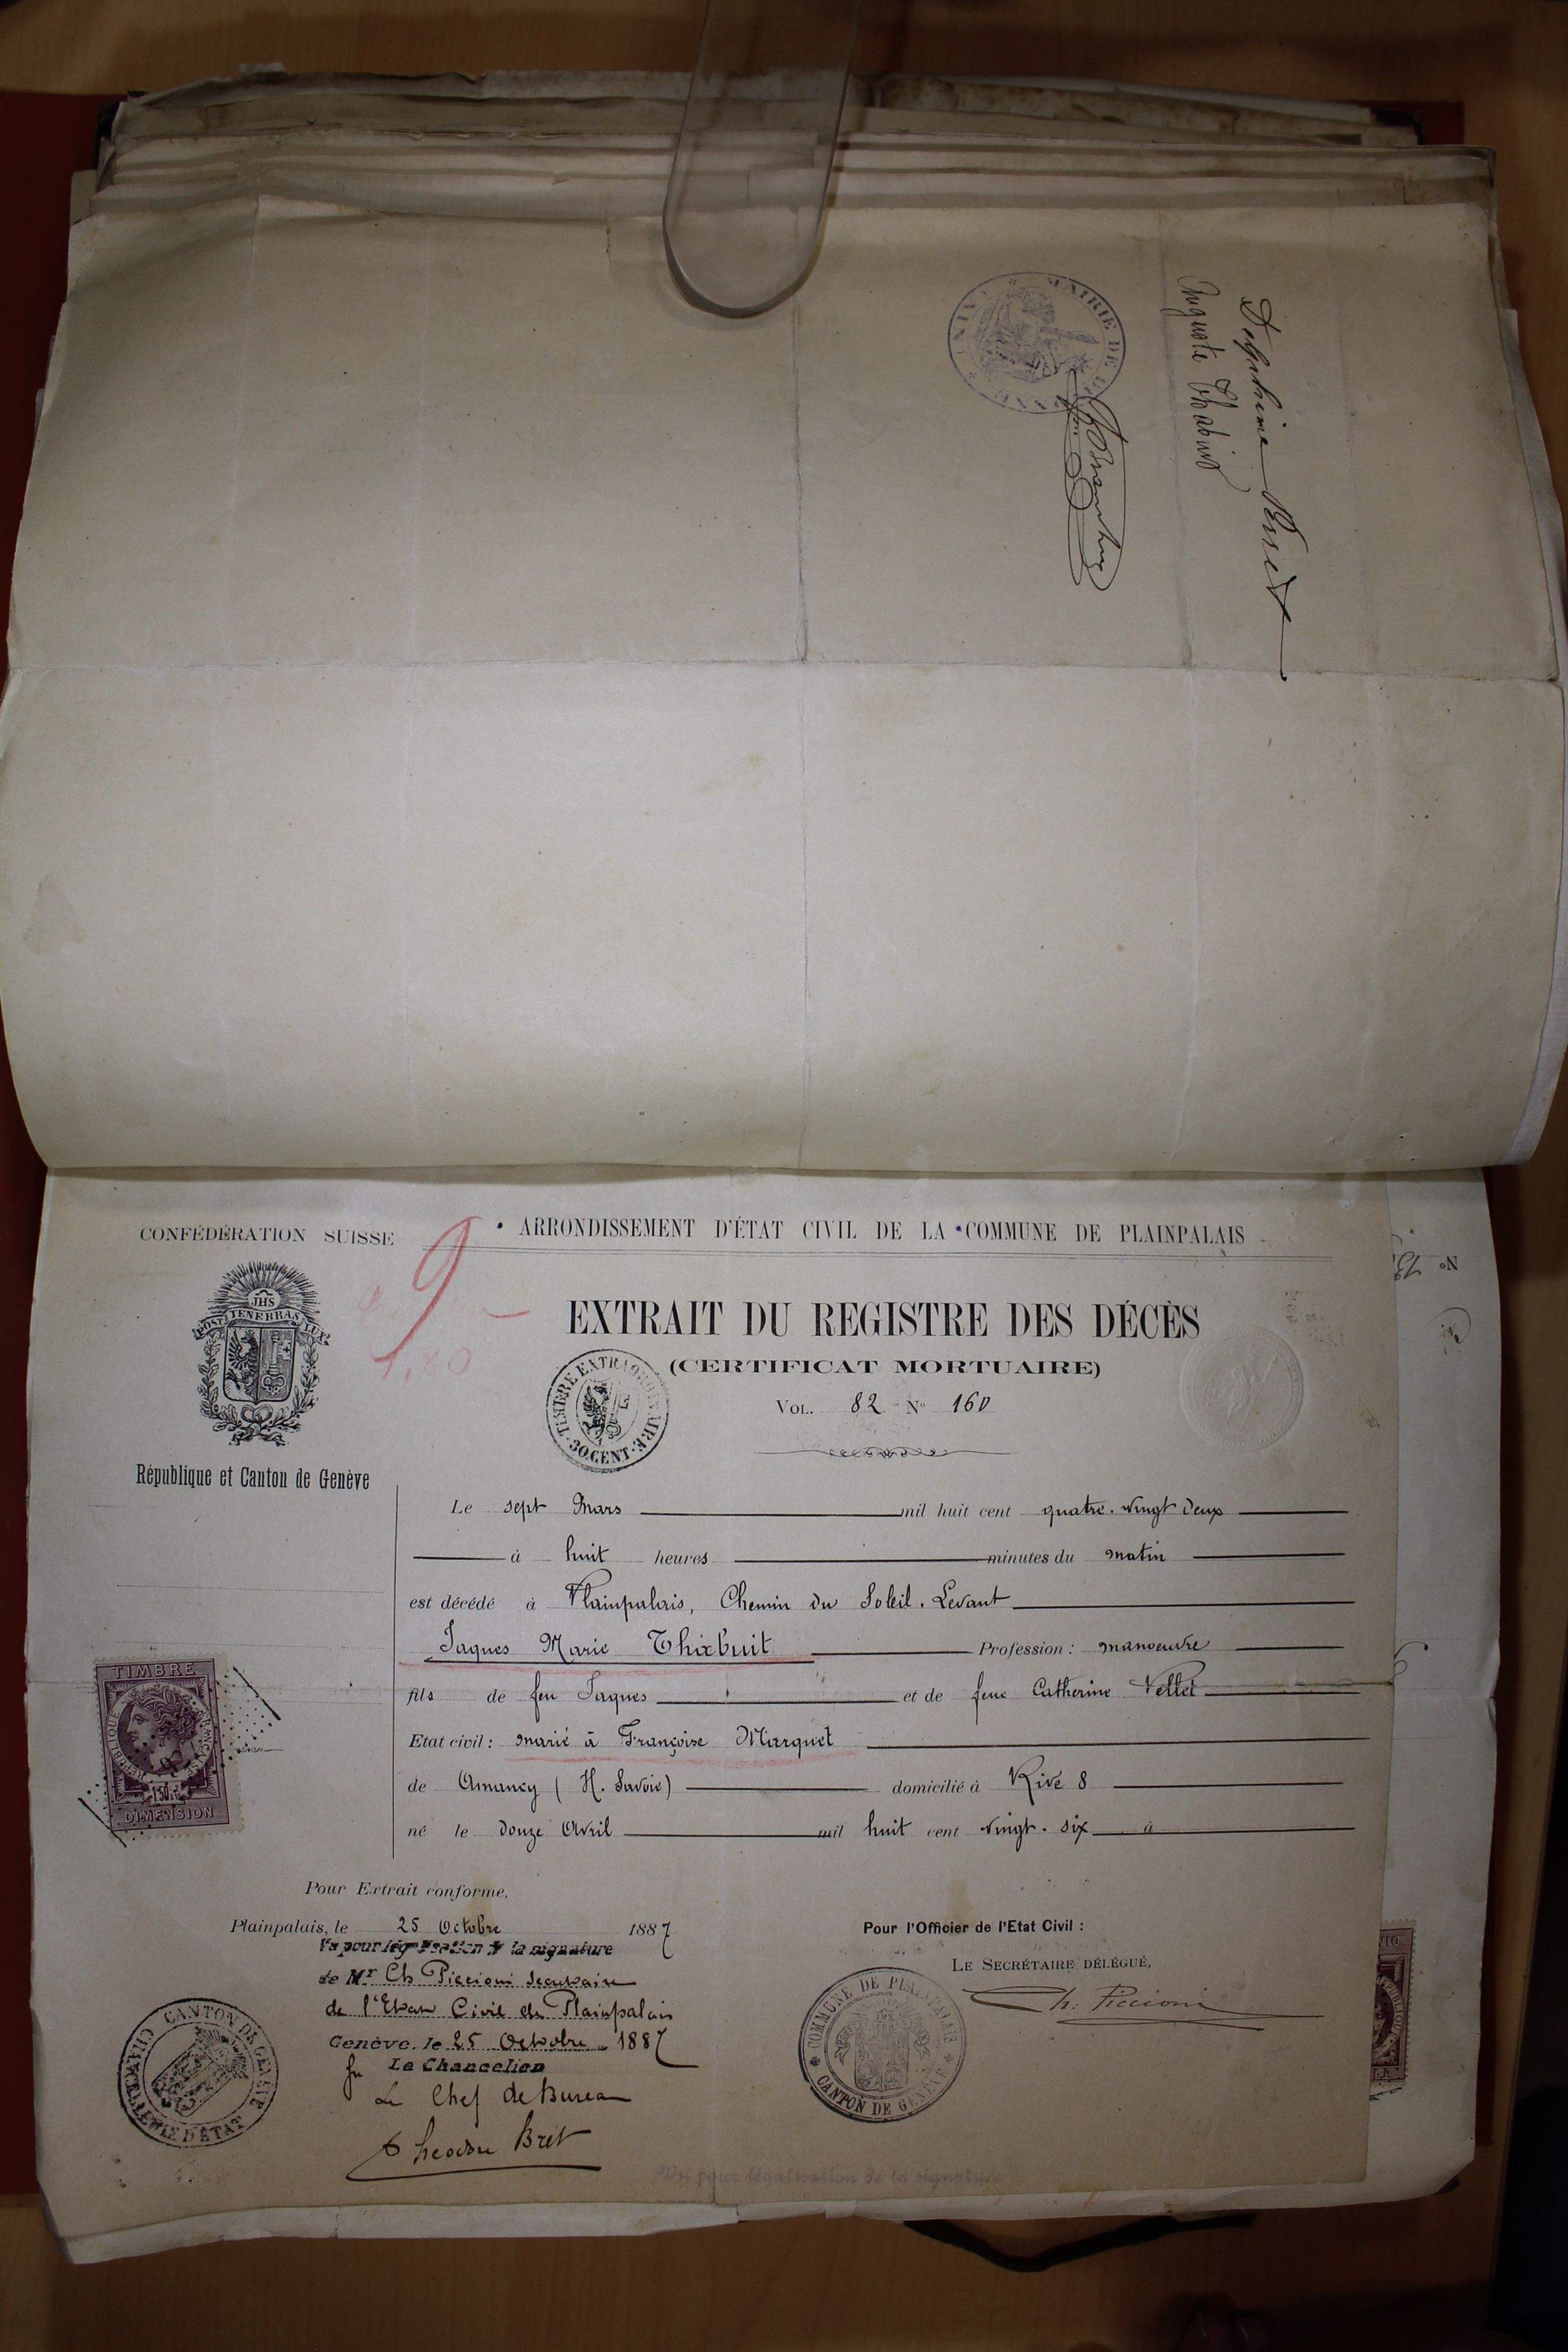 Auguste Thabuis
MAIRIE DE
CONFÉDÉRATION SUISSE
9
1,80
ARRONDISSEMENT D'ÉTAT CIVIL DE LA COMMUNE DE PLAINPALAIS
JHS
POST TENEBRAS LUX
République et Canton de Genève
EXTRAIT DU REGISTRE DES DÉCÈS
(CERTIFICAT MORTUAIRE)
VOL. 82 No 160
TIMBRE EXTRAORDINAIRE
30 CENT.
Le sept Mars mil huit cent quatre-vingt deux
à huit heures minutes du matin
est décédé à Plainpalais, Chemin du Soleil-Levant
Jaques Marie Thiabuit Profession : manoeuvre
fils de feu Jaques et de feue Catherine Vellet
Etat civil : marié à Françoise Marquet
de Amancy (H. Savoie) domicilié à Rive 8
né le douze Avril mil huit cent vingt-six à
TIMBRE
RÉPUBLIQUE FRANÇAISE
DIMENSION
Pour Extrait conforme,
Plainpalais, le 25 Octobre 1887
Vu pour légalisation de la signature
de Mr Ch Piccioni secrétaire
de l'Etat Civil de Plainpalais
Genève, le 25 Octobre 1887
Le Chancelier
Le Chef de Bureau
Theodore Bret
CANTON DE GENÈVE
CHANCELLERIE D'ÉTAT
Pour l'Officier de l'Etat Civil :
LE SECRÉTAIRE DÉLÉGUÉ,
Ch. Piccioni
COMMUNE DE PLAINPALAIS
CANTON DE GENÈVE
Vu pour légalisation de la signature
No